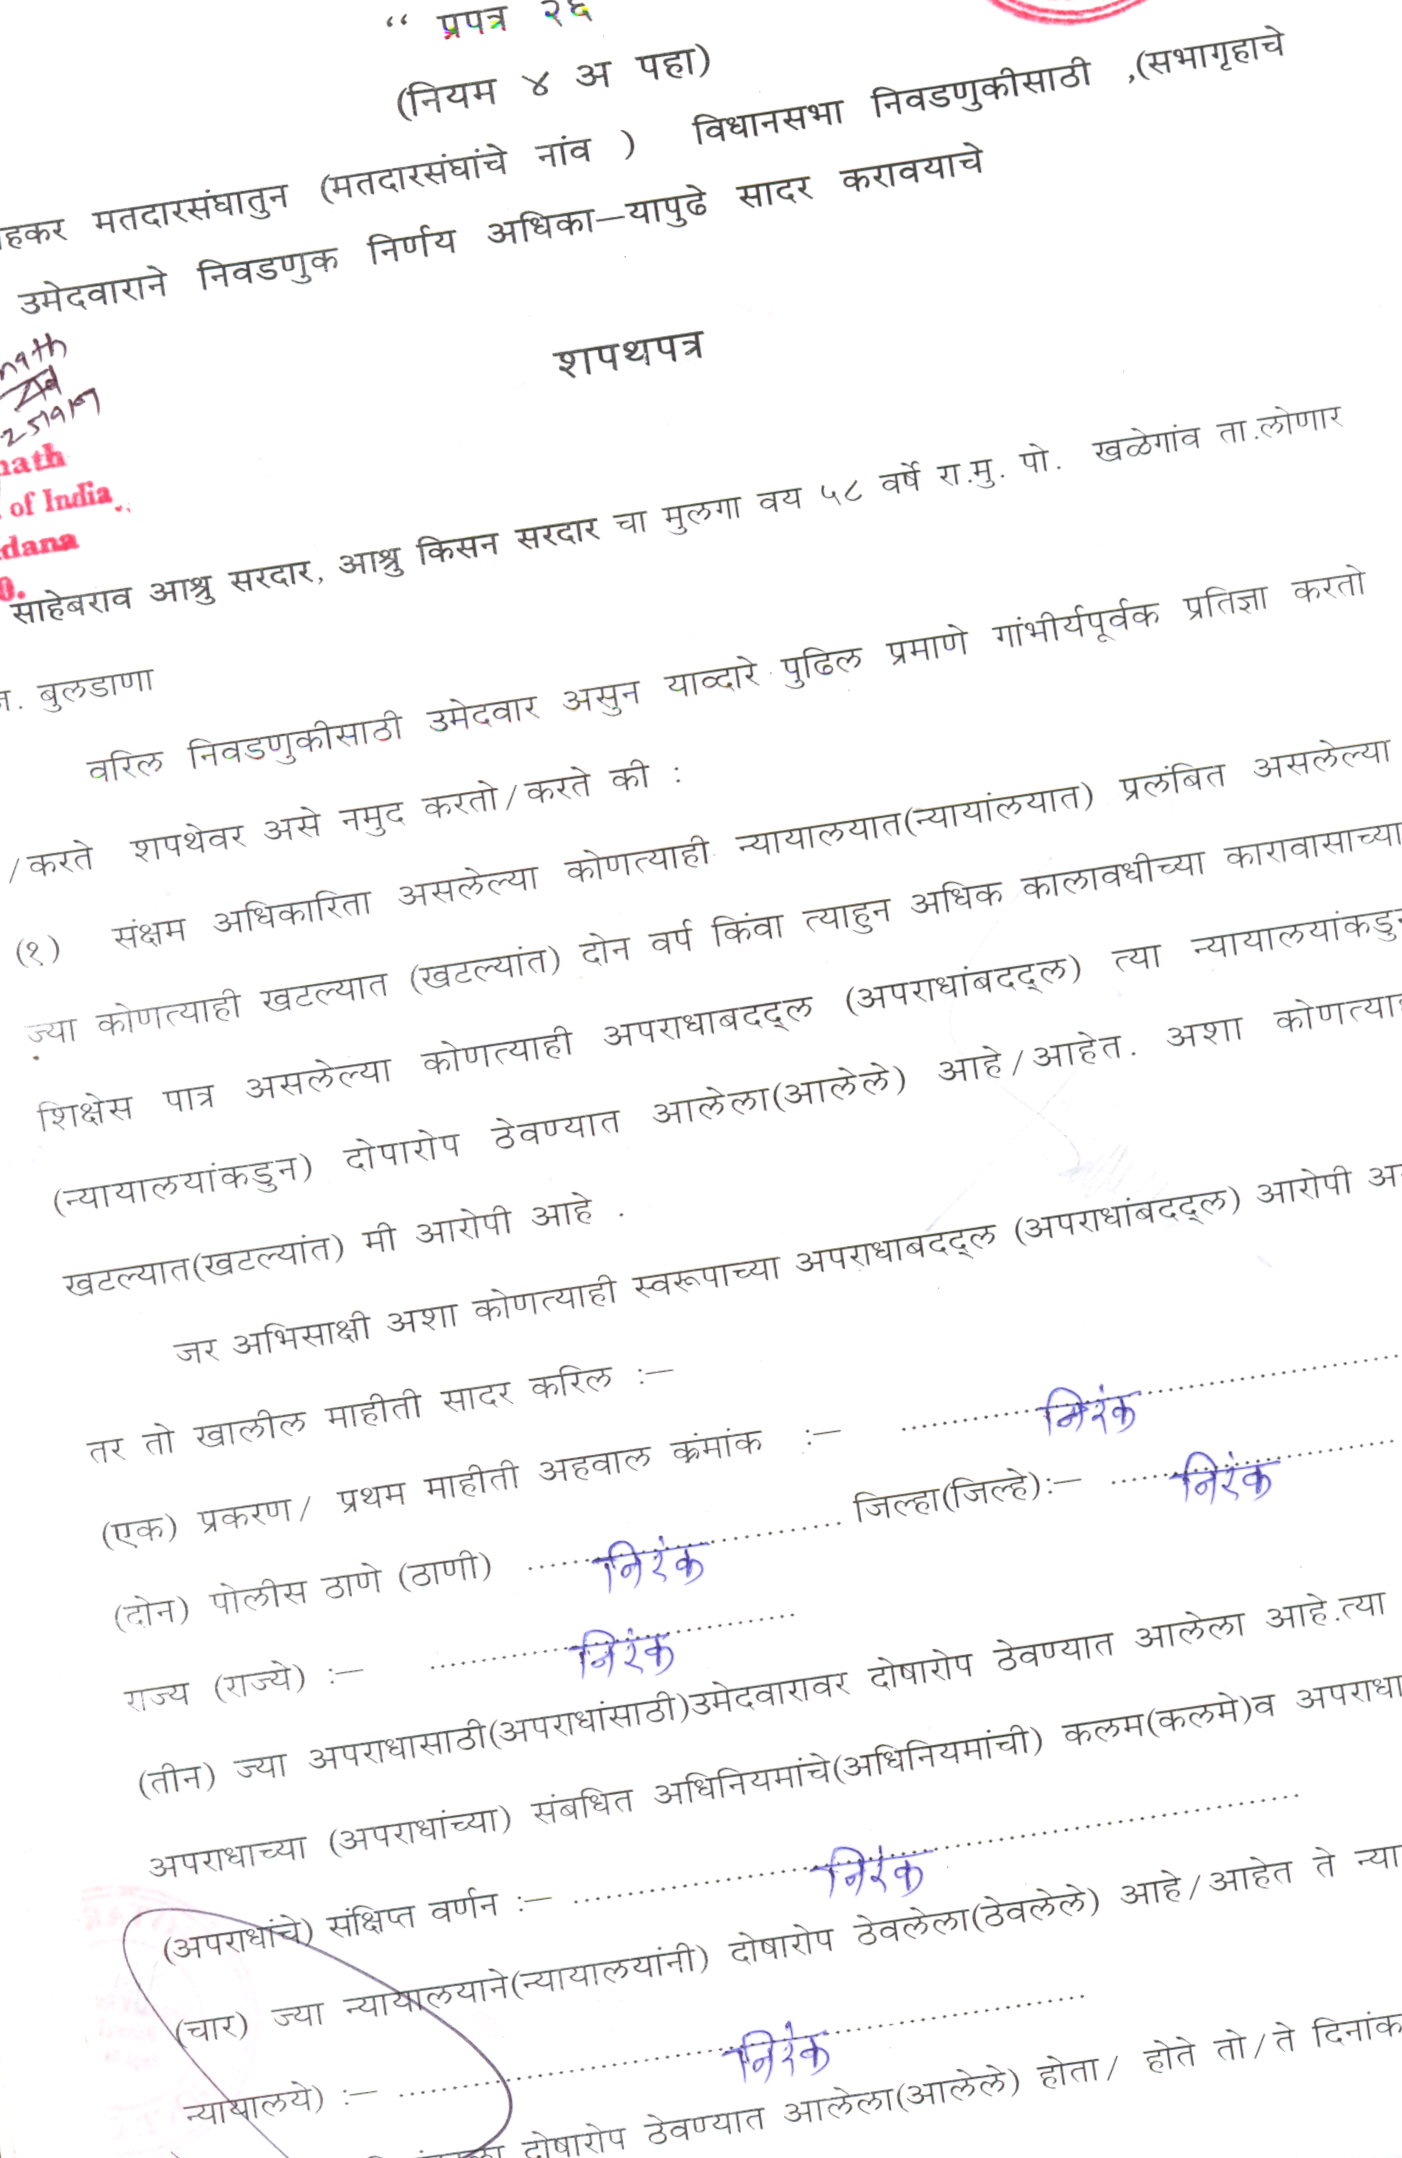 “ प्रपत्र २६
(नियम ४ अ पहा)
मतदारसंघातुन (मतदारसंघांचे नांव ) विधानसभा निवडणुकीसाठी ,(सभागृहाचे
उमेदवाराने निवडणुक निर्णय अधिका—यापुढे सादर करावयाचे
शपथपत्र
of India
साहेबराव आश्रु सरदार, आश्रु किसन सरदार चा मुलगा वय ५८ वर्षे रा.मु. पो. खळेगांव ता.लोणार
बुलडाणा
वरिल निवडणुकीसाठी उमेदवार असुन याव्दारे पुढिल प्रमाणे गांभीर्यपूर्वक प्रतिज्ञा करतो
/करते शपथेवर असे नमुद करतो/करते की :
(१) संक्षम अधिकारिता असलेल्या कोणत्याही न्यायालयात(न्यायांलयात) प्रलंबित असलेल्या
ज्या कोणत्याही खटल्यात (खटल्यांत) दोन वर्प किंवा त्याहुन अधिक कालावधीच्या कारावासाच्या
शिक्षेस पात्र असलेल्या कोणत्याही अपराधाबदद्ल (अपराधांबदद्ल) त्या न्यायालयांकडुन
(न्यायालयांकडुन) दोपारोप ठेवण्यात आलेला(आलेले) आहे/आहेत. अशा
खटल्यात(खटल्यांत) मी आरोपी आहे .
जर अभिसाक्षी अशा कोणत्याही स्वरूपाच्या अपराधाबदद्ल (अपराधांबदद्ल) आरोपी
तर तो खालील माहीती सादर करिल :—
(एक) प्रकरण/ प्रथम माहीती अहवाल क्रंमांक :— निरंक
(दोन) पोलीस ठाणे (ठाणी) निरंक जिल्हा(जिल्हे):— निरंक
राज्य (राज्ये) :— निरंक
(तीन) ज्या अपराधासाठी(अपराधांसाठी)उमेदवारावर दोषारोप ठेवण्यात आलेला आहे.त्या
अपराधाच्या (अपराधांच्या) संबधित अधिनियमांचे(अधिनियमांची) कलम(कलमे)व
(अपराधांचे) संक्षिप्त वर्णन :— निरंक
(चार) ज्या न्यायालयाने(न्यायालयांनी) दोषारोप ठेवलेला(ठेवलेले) आहे/आहेत ते
न्यायालये) :— निरंक
दोषारोप ठेवण्यात आलेला(आलेले) होता/ होते तो/ते दिनांक